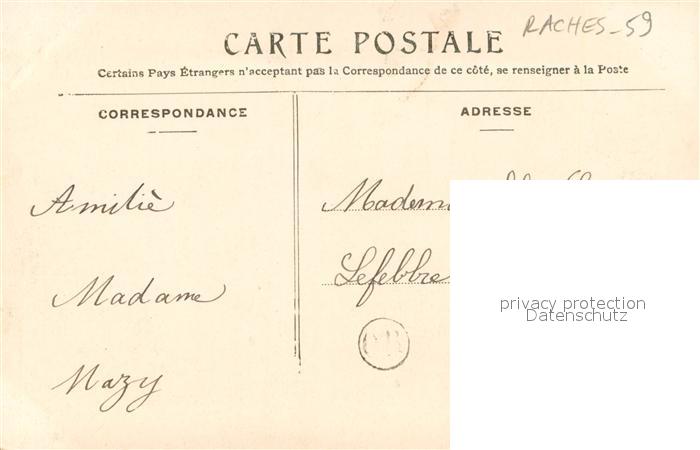 RACHES-59
CARTE POSTALE
Certains Pays Étrangers n'acceptant pas la Correspondance de ce côté, se renseigner à la Poste
CORRESPONDANCE
ADRESSE
Amitiè
Madame
Mazy
Madem
Lefebbre
privacy protection
Datenschutz